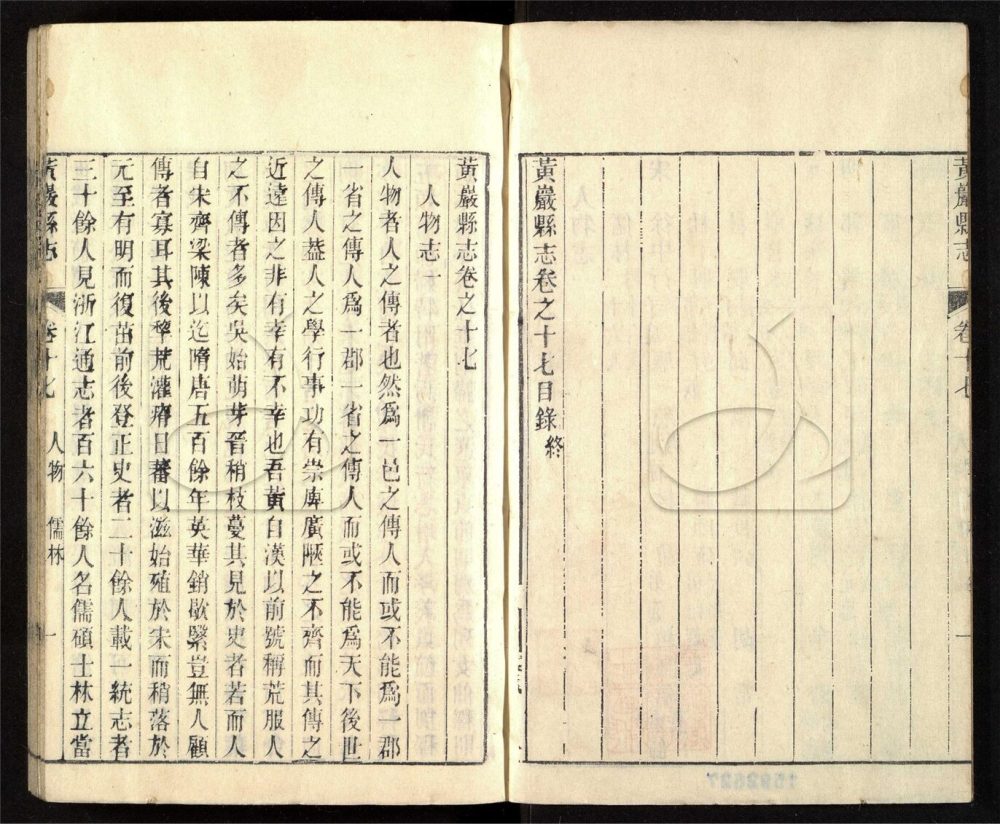 黃巖縣志
卷十七
一
黃巖縣志卷之十七目錄終
黃巖縣志卷之十七
人物志一
人物者人之傳者也然爲一邑之傳人而或不能爲一郡
一省之傳人爲一郡一省之傳人而或不能爲天下後世
之傳人蓋人之學行事功有崇庳廣陿之不齊而其傳之
近遠因之非有幸有不幸也吾黃自漢以前號稱荒服人
之不傳者多矣吳始萌芽晉稍枝蔓其見於史者若而人
自宋齊梁陳以迄隋唐五百餘年英華銷歇緊豈無人顧
傳者寡耳其後犂荒灌瘠日蕃以滋始殖於宋而稍落於
元至有明而復茁前後登正史者二十餘人載一統志者
三十餘人見浙江通志者百六十餘人名儒碩士林立當
黃巖縣志
卷十七
人物
儒林
一
1592627